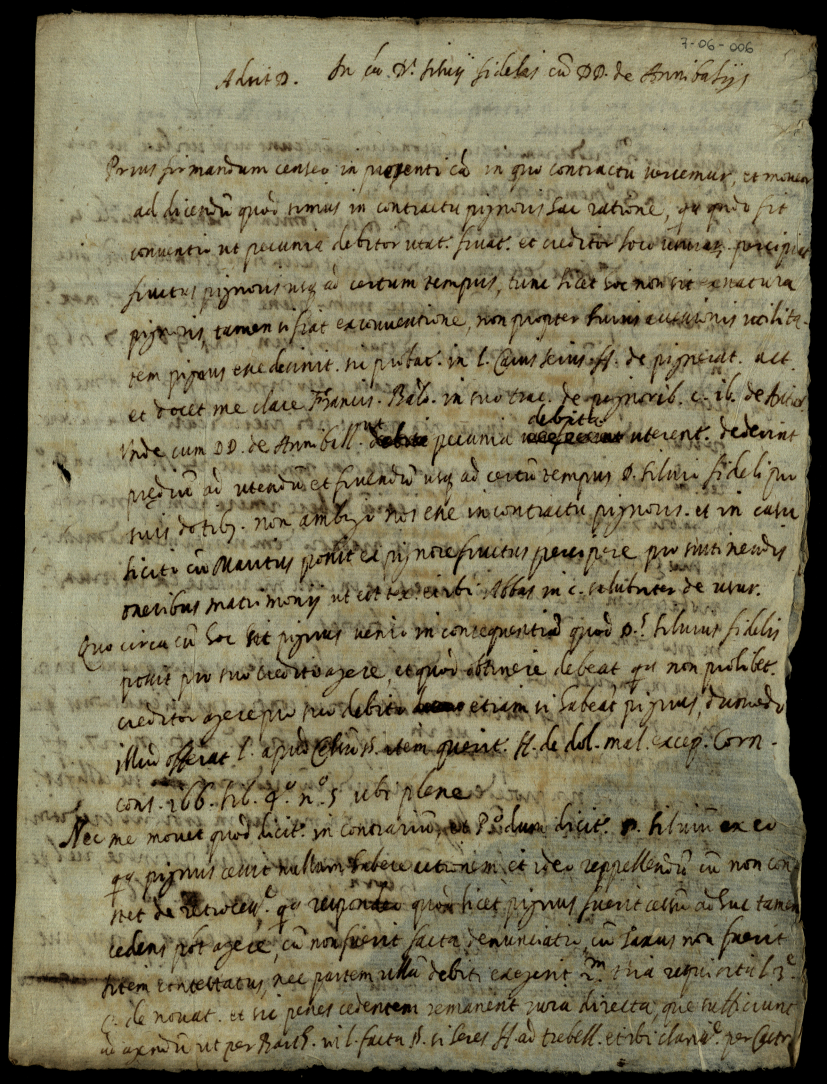 7-06-006
Adsit D. In cã D. Silvij fidelis cũ DD. de Annibalijs
Prius firmandum censeo in presenti cã in quo contractu versemur, et moveor
ad dicendũ quòd simus in contractu pignoris hac ratione, qa qndo fit
conventio ut pecunia debitor utat. fruat. et creditor loco usurar. percipiat
fructus pignoris usq ad certum tempus, tunc licet hoc non sit ex natura
pignoris, tamen si fiat ex conventione, non propter huius
tem pignus esse desinit. sic probat. in l. Caius Seius ff. de pignerat. act.
et docet me clare Francis. Balb. in suo trac. de pignorib. c.
Unde cum DD. de Anniball. ut pecunia debita uterent. dederint
prędiũ ad utendũ et fruendũ usq ad certũ tempus D. Silvio fideli pro
suis dotibq. non ambigo nos esse in contractu pignoris. et in casu
licito cũ Maritus possit ex pignore fructus percipere pro sustinendis
oneribus matrimonij ut est tex. et ibi Abbas in c. salubriter de usur.
Quo circa cũ hoc sit pignus venio in consequentiã quòd D. Silvius fidelis
possit pro suo credito agere, et quòd obtinere debeat qa non prohibet.
creditor agere pro suo debito etiam si habeat pignus, dummodo
illud offerat l. apud Celsũ §. item querit. ff. de dol. mal. excep. Corn.
cons. 266. lib. 4.º nº 5 ubi plene
Nec me movet quòd dicit. in contrariũ, et Pº dum dicit. D. Silviũ ex eo
qa pignus cessit nullam habere actionem et ideo reppellendũ cũ non con
stet de retrocess.e qa respondeo quòd licet pignus fuerit cessũ adhuc tamen
cedens pot agere, cũ non fuerit facta denunciatio, cũ non fuerit
litem contestatus, nec partem ullã debiti exegerit requisita l. 3.
C. de novat. et sic penes cedentem remanent iura directa, que sufficiunt
ad agendũ ut per Barth. in l. facta §. si heres ff. ad trebell. et ibi per Castr.